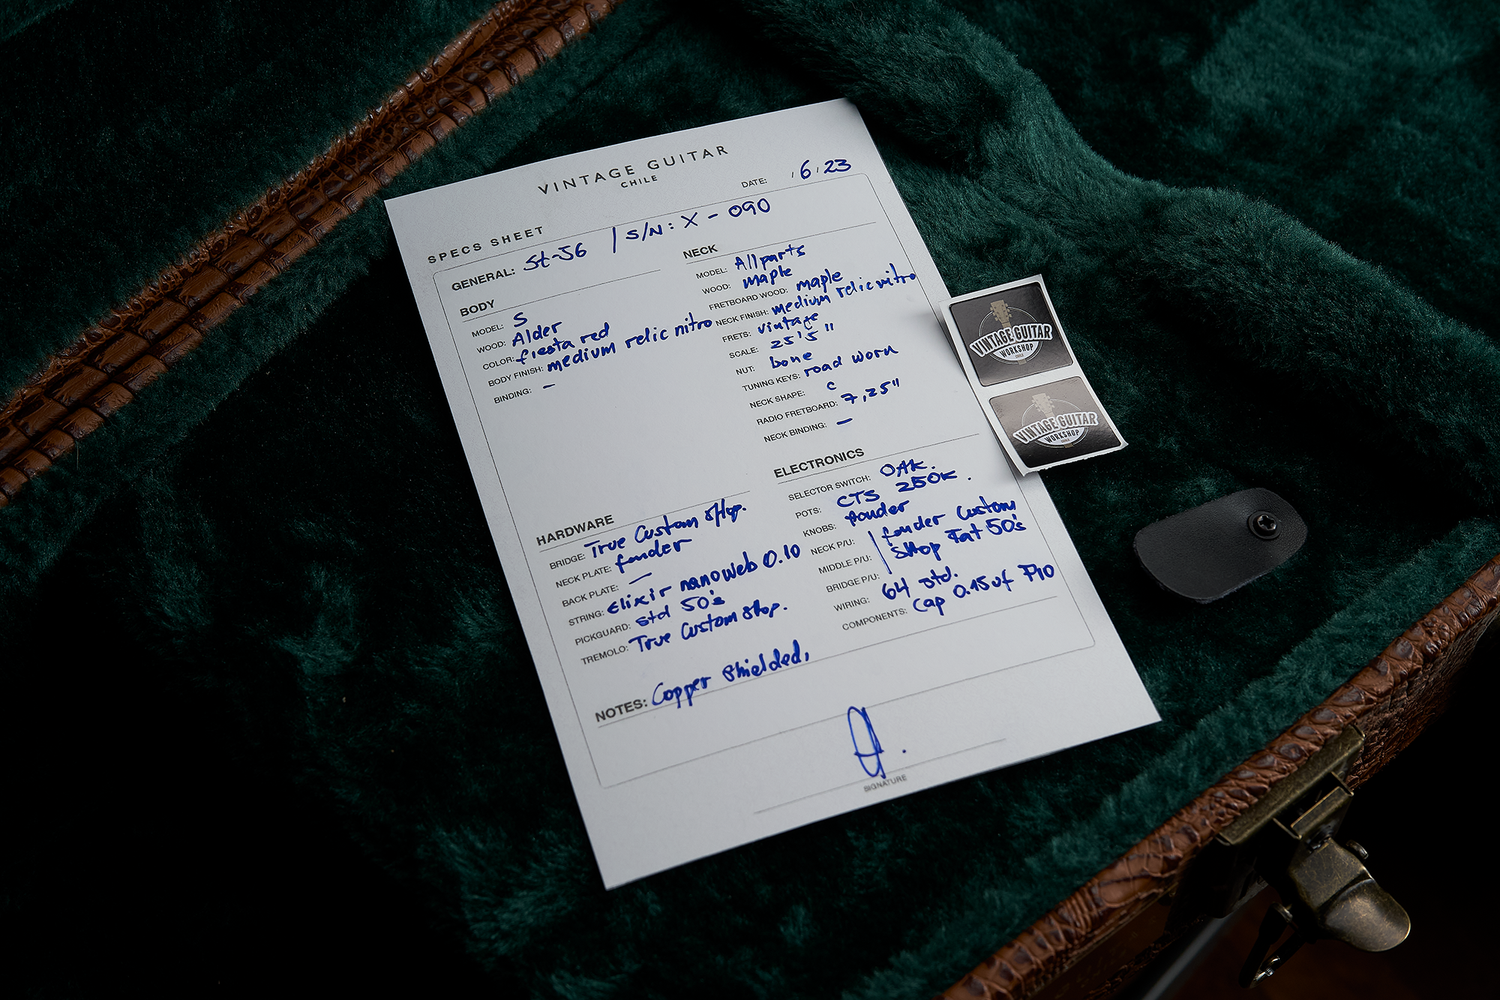 VINTAGE GUITAR
CHILE
DATE: 6.23
SPECS SHEET
GENERAL: St-56 / S/N: X - 090
BODY
MODEL: S
WOOD: Alder
COLOR: fiesta red
BODY FINISH: medium relic nitro
BINDING: –
NECK
MODEL: Allparts
WOOD: maple
FRETBOARD WOOD: maple
NECK FINISH: medium relic nitro
FRETS: vintage
SCALE: 25'5"
NUT: bone
TUNING KEYS: road worn
NECK SHAPE: C
RADIO FRETBOARD: 7,25"
NECK BINDING: –
HARDWARE
BRIDGE: True Custom Shop.
NECK PLATE: fender
BACK PLATE: –
STRING: Elixir nanoweb 0.10
PICKGUARD: std 50's
TREMOLO: True Custom Shop.
ELECTRONICS
SELECTOR SWITCH: OAK.
POTS: CTS 250K.
KNOBS:
NECK P/U: fender Custom
MIDDLE P/U: Shop Fat 50's
BRIDGE P/U:
WIRING: 64 std.
COMPONENTS: Cap 0.15uf PIO
NOTES: Copper shielded,
SIGNATURE
VINTAGE GUITAR
WORKSHOP
VINTAGE GUITAR
WORKSHOP